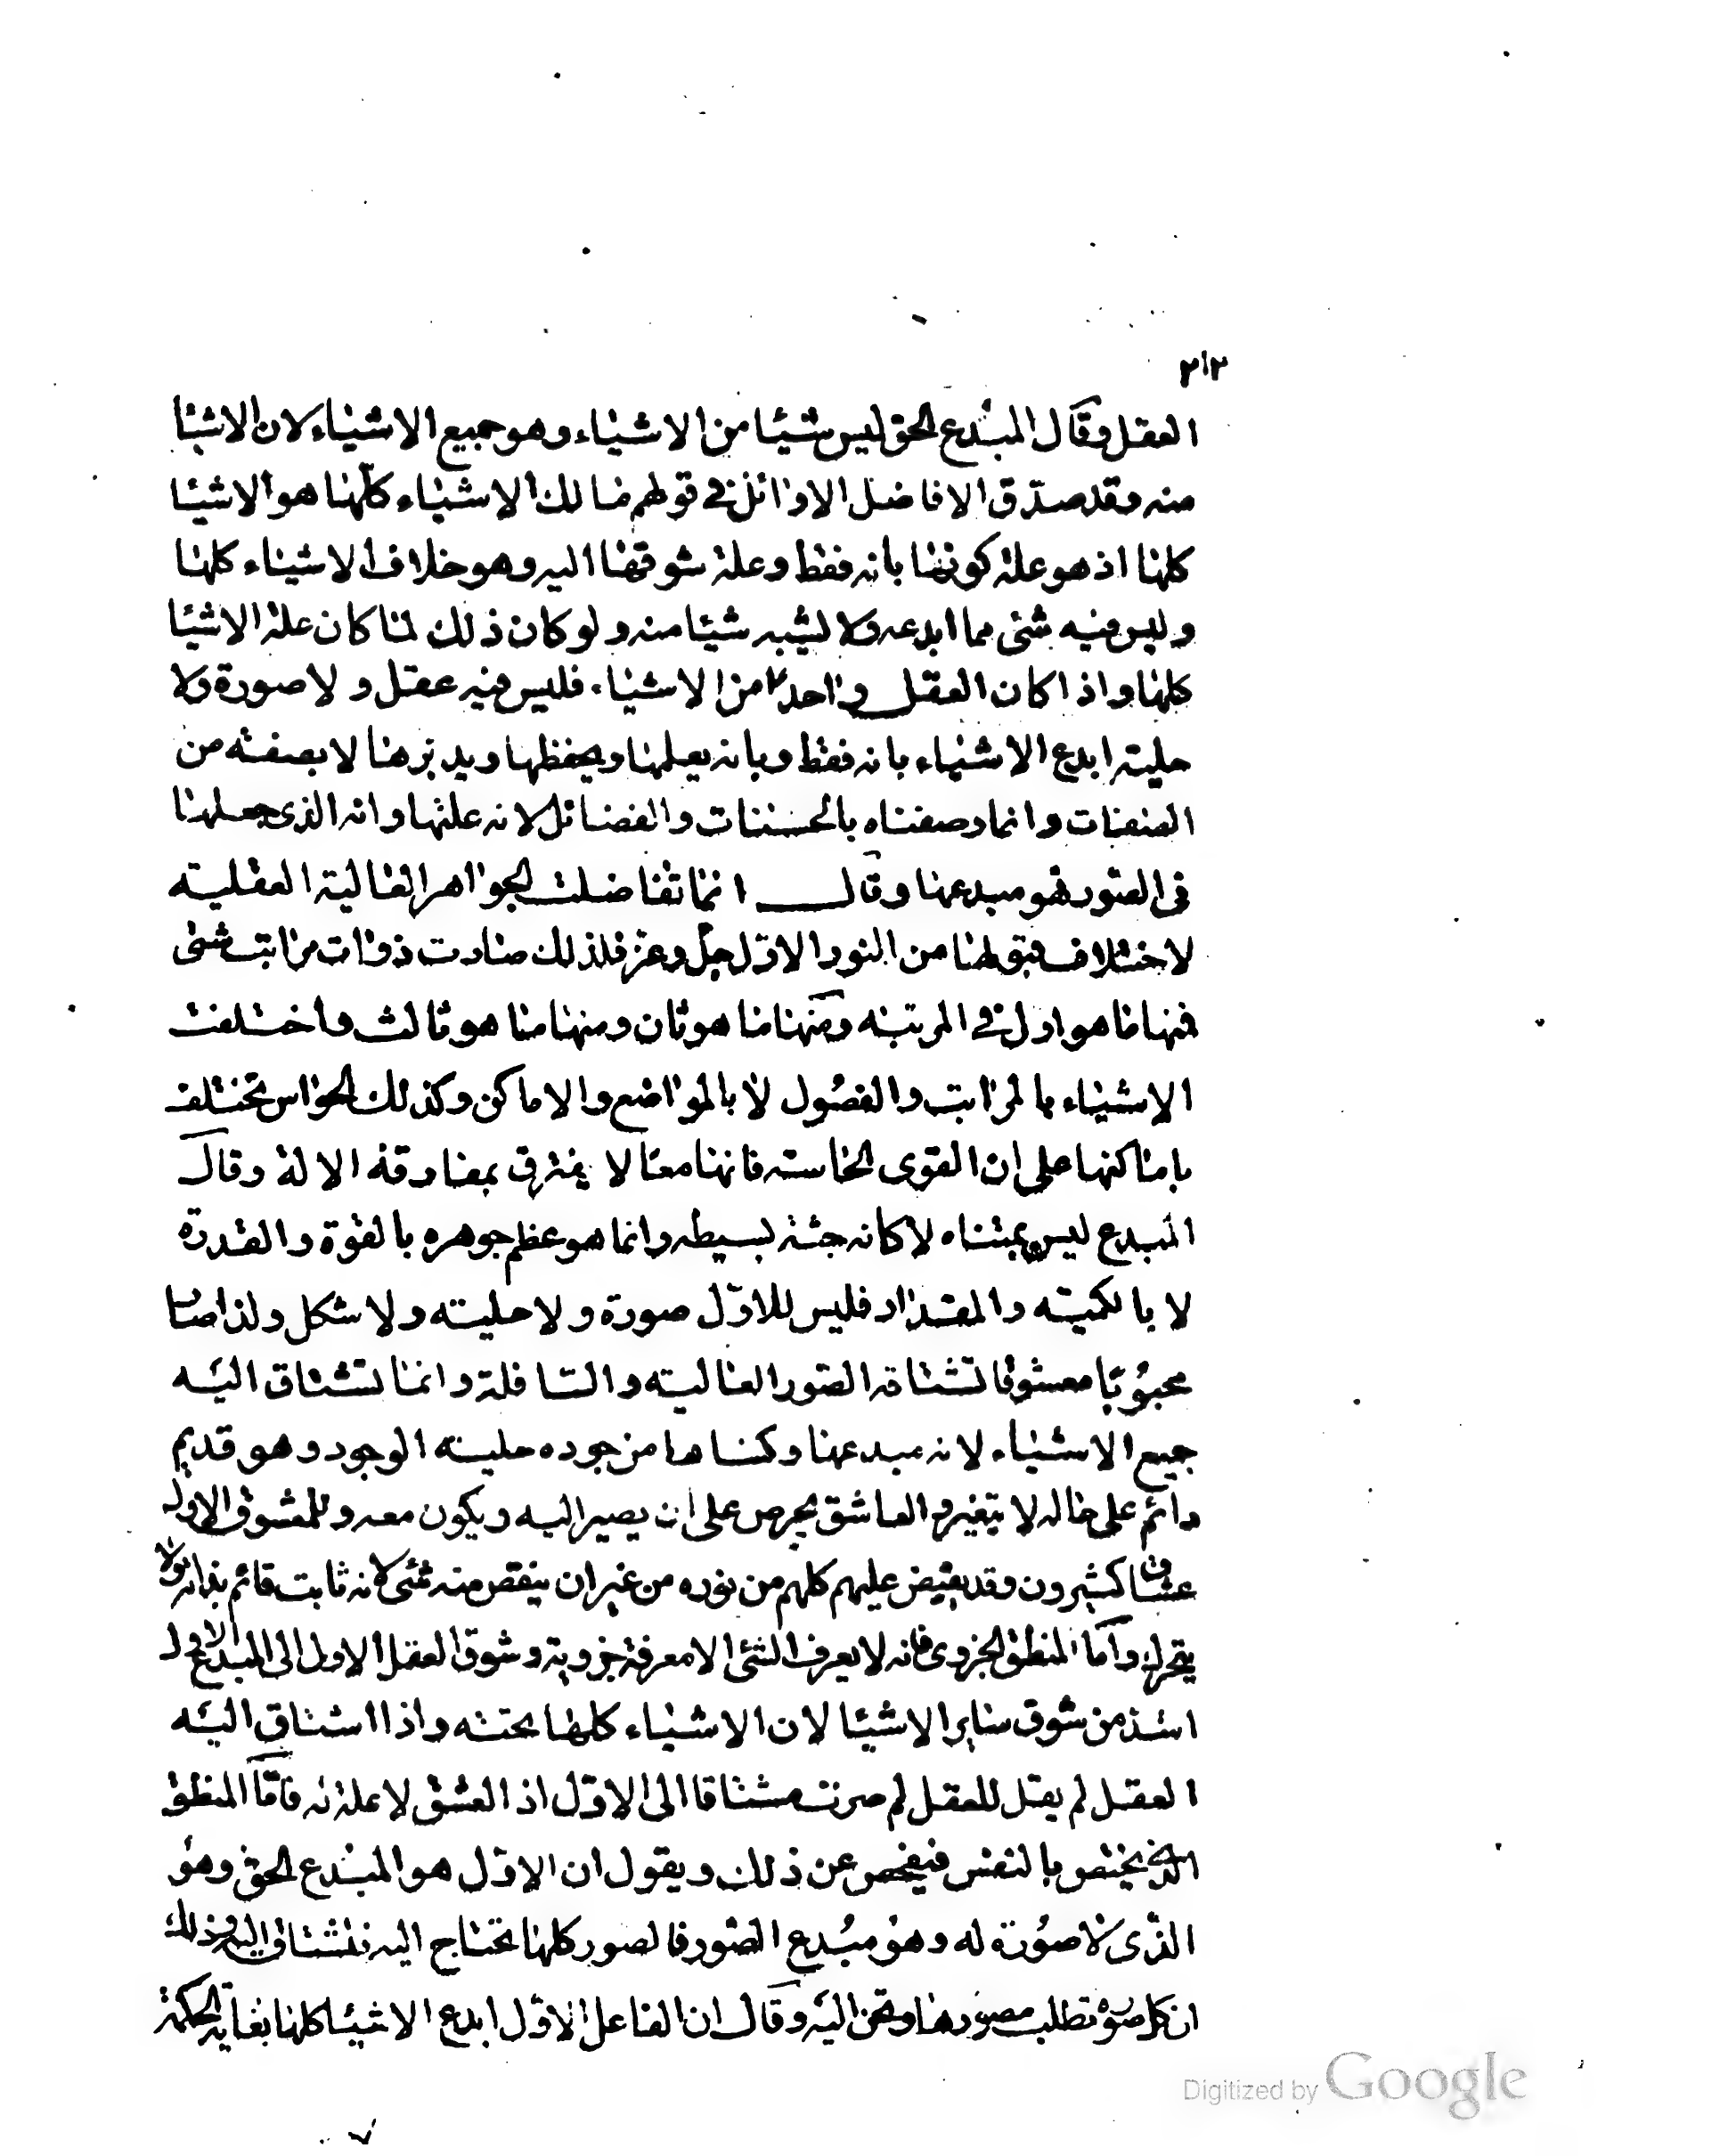 ٢١٢
العقل وقال المبدع الحق ليس شيئا من الاشياء وهو جميع الاشياء لان الاشيا
منه وقد صدق الافاضل الاوائل في قولهم مالك الاشياء كلها هو الاشيا
كلها اذ هو علة كونها بانه فقط وعلة شوقها اليه وهو خلاف الاشياء كلها
وليس فيه شئ مما ابدعه ولا يشبه شيئا منه ولو كان ذلك لما كان علة الاشيا
كلها واذا كان العقل واحدا من الاشياء فليس فيه عقل ولا صورة ولا
حلية ابدع الاشياء بانه فقط وبانه يعلمها ويحفظها ويدبرها لا بصفة من
الصفات وانما وصفناه بالحسنات والفضائل لانه علتها وانه الذي جعلها
في الصور فهو مبدعها وقال انما تفاضلت الجواهر العالية العقلية
لاختلاف قبولها من النور الاول جل وعز فلذلك صارت ذوات مراتب شتى
فمنها ما هو اول في المرتبة ومنها ما هو ثان ومنها ما هو ثالث واختلفت
الاشياء بالمراتب والفصول لا بالمواضع والاماكن وكذلك الحواس تختلف
باماكنها على ان القوى الحاسة فانها معا لا يفترق بمفارقة الالة وقال
المبدع ليس بمتناه لا كانه جثة بسيطه وانما هو عظم جوهره بالقوة والقدرة
لا بالكمية والمقدار فليس للاول صورة ولا حلية ولا شكل ولذا صار
محبوبا معشوقا تشتاقه الصور العالية والسافلة وانما تشتاق اليه
جميع الاشياء لانه مبدعها وكساها من جوده حلية الوجود وهو قديم
دائم على حاله لا يتغير والعاشق يحرص على ان يصير اليه ويكون معه وللمعشوق الاول
عشاق كثيرون وقد يفيض عليهم كلهم من نوره من غير ان ينقص منه شئ لانه ثابت قائم بذاته ولا
يتحرك واما المنطق الجزوى فانه لا يعرف الشئ الا معرفة جزوية وشوق العقل الاول الى المبدع الاول
اشد من شوق ساير الاشيا لان الاشياء كلها تحته واذا اشتاق اليه
العقل لم يقل للعقل لم صرت مشتاقا الى الاول اذ العشق لا علة له فاما المنطق
الذي يختص بالنفس فيفحص عن ذلك ويقول ان الاول هو المبدع الحق وهو
الذي لا صورة له وهو مبدع الصور فالصور كلها تحتاج اليه فتشتاق اليه وذلك
ان كل صورة تطلب مصورها وتحن اليه وقال ان الفاعل الاول ابدع الاشيا كلها بغاية الحكمة
Digitized by Google